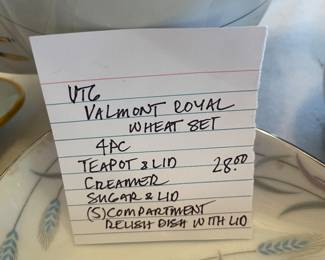 VTG
VALMONT ROYAL
WHEAT SET
4PC
TEAPOT & LID 28.00
CREAMER
SUGAR & LID
(S) COMPARTMENT
RELISH DISH WITH LID